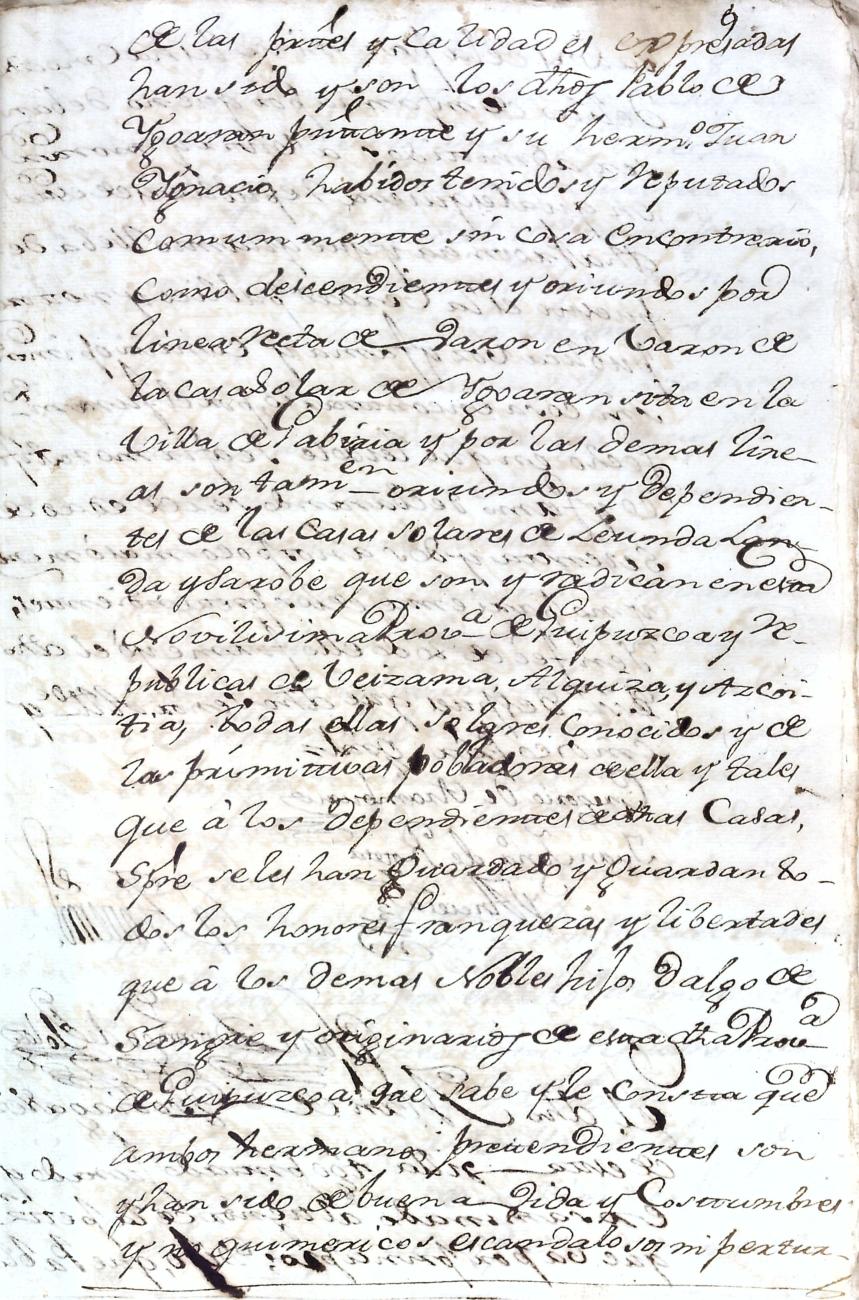 9
de las prtes y calidades expresadas
han sido y son los dhos Pablo de
Ygoaran prettante y su herm.o Juan
Ygnacio, habidos tenidos y Reputados
comummente sin cosa encontrario,
como descendientes y oriundos por
linea Recta de Varon en Varon de
la casa solar de Ygoaran sita en la
Villa de Gabiria y por las demas line-
as son tamien oriundos y Dependien-
tes de las Casas solares de Leunda Lan-
da y Sarobe que son y radican en esta
Novilisima Prov.a de Guipuzcoa y Re-
publicas de Veizama, Alquiza, y Azcoi-
tia, todas ellas solares conocidos y de
las primitivas pobladoras de ella y tales
que à los Dependientes de dhas Casas,
Spre se les han Guardado y Guardan to-
dos los honores franquezas y libertades
que à los demas Nobles hijos Dalgo de
Sangre y originarios de esta dha Prov.a
de Guipuzcoa, que sabe y le consta que
ambos hermanos pretendientes son
y han sido de buena Vida y Costumbres
y no quimericos escandalosos ni pertur-